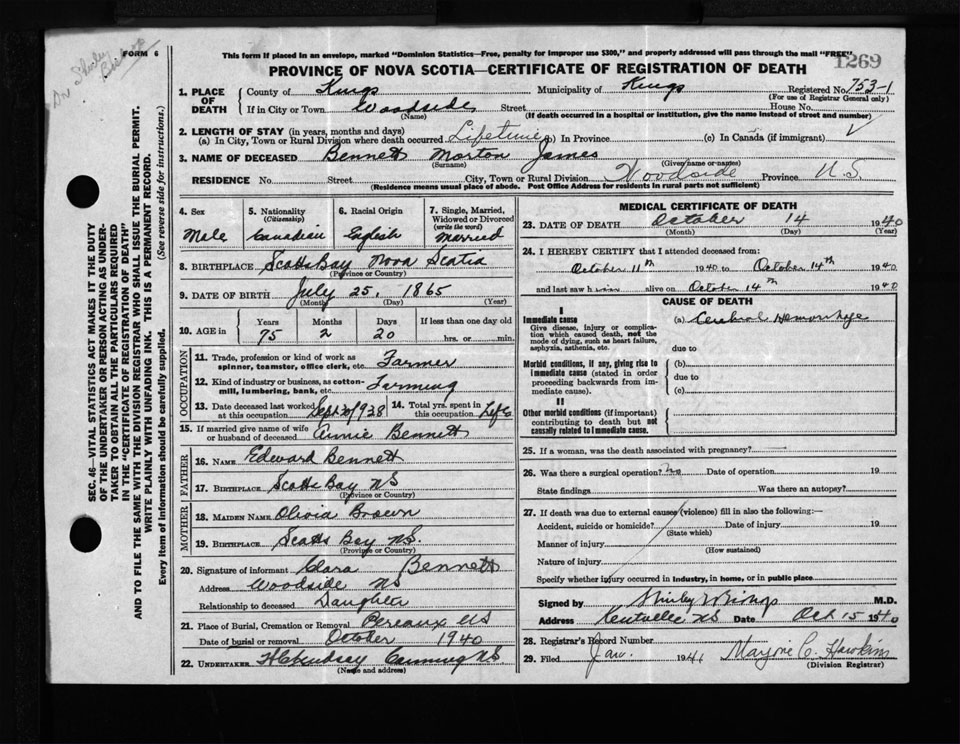 FORM 6
Dr Shirley
This form if placed in an envelope, marked "Dominion Statistics—Free, penalty for improper use $300," and properly addressed will pass through the mail "FREE".
1269
PROVINCE OF NOVA SCOTIA—CERTIFICATE OF REGISTRATION OF DEATH
1. PLACE OF DEATH
County of Kings Municipality of Kings Registered No. 753-1
(For use of Registrar General only)
If in City or Town Woodside Street House No.
(Name) (If death occurred in a hospital or institution, give the name instead of street and number)
2. LENGTH OF STAY (in years, months and days)
(a) In City, Town or Rural Division where death occurred Lifetime (b) In Province (c) In Canada (if immigrant)
3. NAME OF DECEASED Bennett Morton James
(Surname) (Given name or names)
RESIDENCE No. Street City, Town or Rural Division Woodside Province N.S.
(Residence means usual place of abode. Post Office Address for residents in rural parts not sufficient)
4. Sex
Male
5. Nationality
(Citizenship)
Canadian
6. Racial Origin
English
7. Single, Married,
Widowed or Divorced
(write the word)
Married
8. BIRTHPLACE Scotts Bay Nova Scotia
(Province or Country)
9. DATE OF BIRTH July 25, 1865
(Month) (Day) (Year)
10. AGE in
Years Months Days If less than one day old
75 2 20 hrs. or min.
OCCUPATION
11. Trade, profession or kind of work as
spinner, teamster, office clerk, etc. Farmer
12. Kind of industry or business, as cotton-
mill, lumbering, bank, etc. Farming
13. Date deceased last worked
at this occupation Sept 20/1938
14. Total yrs. spent in
this occupation Life
15. If married give name of wife
or husband of deceased Annie Bennett
FATHER
16. NAME Edward Bennett
17. BIRTHPLACE Scotts Bay NS
(Province or Country)
MOTHER
18. MAIDEN NAME Olivia Brown
19. BIRTHPLACE Scotts Bay NS.
(Province or Country)
20. Signature of informant Clara Bennett
Address Woodside NS
Relationship to deceased Daughter
21. Place of Burial, Cremation or Removal Pereaux NS
Date of burial or removal October 1940
22. UNDERTAKER Canning NS
(Name and address)
MEDICAL CERTIFICATE OF DEATH
23. DATE OF DEATH October 14 1940
(Month) (Day) (Year)
24. I HEREBY CERTIFY that I attended deceased from:
October 11th 1940 to October 14th 1940
and last saw h alive on October 14th 1940
CAUSE OF DEATH
I
Immediate cause
Give disease, injury or complica-
tion which caused death, not the
mode of dying, such as heart failure,
asphyxia, asthenia, etc.
(a) Cerebral Hemorrhage
due to
Morbid conditions, if any, giving rise to
immediate cause (stated in order
proceeding backwards from im-
mediate cause).
(b)
due to
(c)
II
Other morbid conditions (if important)
contributing to death but not
causally related to immediate cause.
25. If a woman, was the death associated with pregnancy?
26. Was there a surgical operation? no Date of operation 19
State findings Was there an autopsy?
27. If death was due to external causes (violence) fill in also the following:—
Accident, suicide or homicide? Date of injury 19
(State which)
Manner of injury
(How sustained)
Nature of injury
Specify whether injury occurred in industry, in home, or in public place
Signed by Shirley Bishop M.D.
Address Kentville NS Date Oct 15 1940
28. Registrar's Record Number
29. Filed Jan. 1941 Marjorie C. Hawkins
(Division Registrar)
SEC. 46—VITAL STATISTICS ACT MAKES IT THE DUTY
OF THE UNDERTAKER OR PERSON ACTING AS UNDER-
TAKER TO OBTAIN ALL THE PARTICULARS REQUIRED
IN THE "CERTIFICATE OF REGISTRATION OF DEATH"
AND TO FILE THE SAME WITH THE DIVISION REGISTRAR WHO SHALL ISSUE THE BURIAL PERMIT.
WRITE PLAINLY WITH UNFADING INK. THIS IS A PERMANENT RECORD.
Every item of information should be carefully supplied. (See reverse side for instructions.)